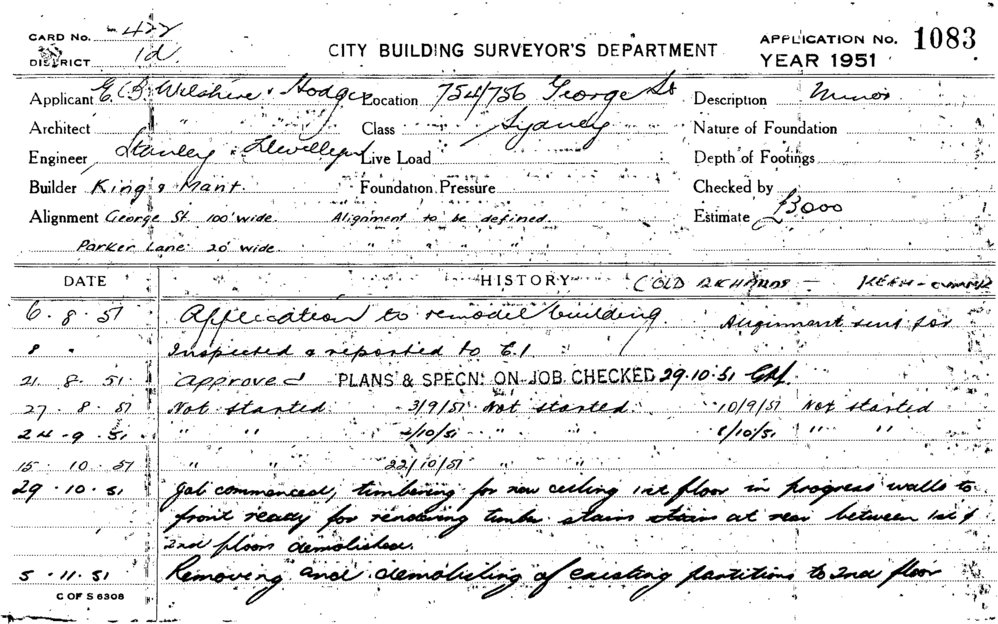 CARD No. -422
DISTRICT 1d.
CITY BUILDING SURVEYOR'S DEPARTMENT
APPLICATION No. 1083
YEAR 1951
Applicant E. B. Wilshire & Hodges Location 754/756 George St Description Minor
Architect " " Class Sydney Nature of Foundation
Engineer Stanley & Llewellyn Live Load Depth of Footings
Builder King & Mant. Foundation Pressure Checked by
Alignment George St. 100' wide. Alignment to be defined. Estimate £3000
Parker Lane 20' wide. " " " "
DATE HISTORY
6. 8. 51 Application to remodel building. Alignment sent for
8 " Inspected & reported to E.1
21. 8. 51. Approved PLANS & SPECN. ON JOB CHECKED 29.10.51
27. 8. 51 Not started. 3/9/51 Not started. 10/9/51 Not started
24. 9. 51 " " 2/10/51 " " 8/10/51 " "
15. 10. 51 " " 22/10/51 " "
29. 10. 51 Job commenced, timbering for new ceiling 1st floor in progress walls to
front ready for rendering timber stairs stairs at rear between 1st &
2nd floors demolished.
5. 11. 51 Removing and demolishing of existing partitions to 2nd floor
C OF S 6308